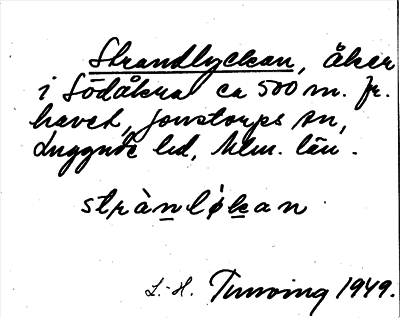 Strandlyckan, åker
i Södåkra ca 500 m. fr.
havet, Jonstorps sn,
Luggude hd, Mlm. län.
strànlǿkan
L.-H. Tunving 1949.